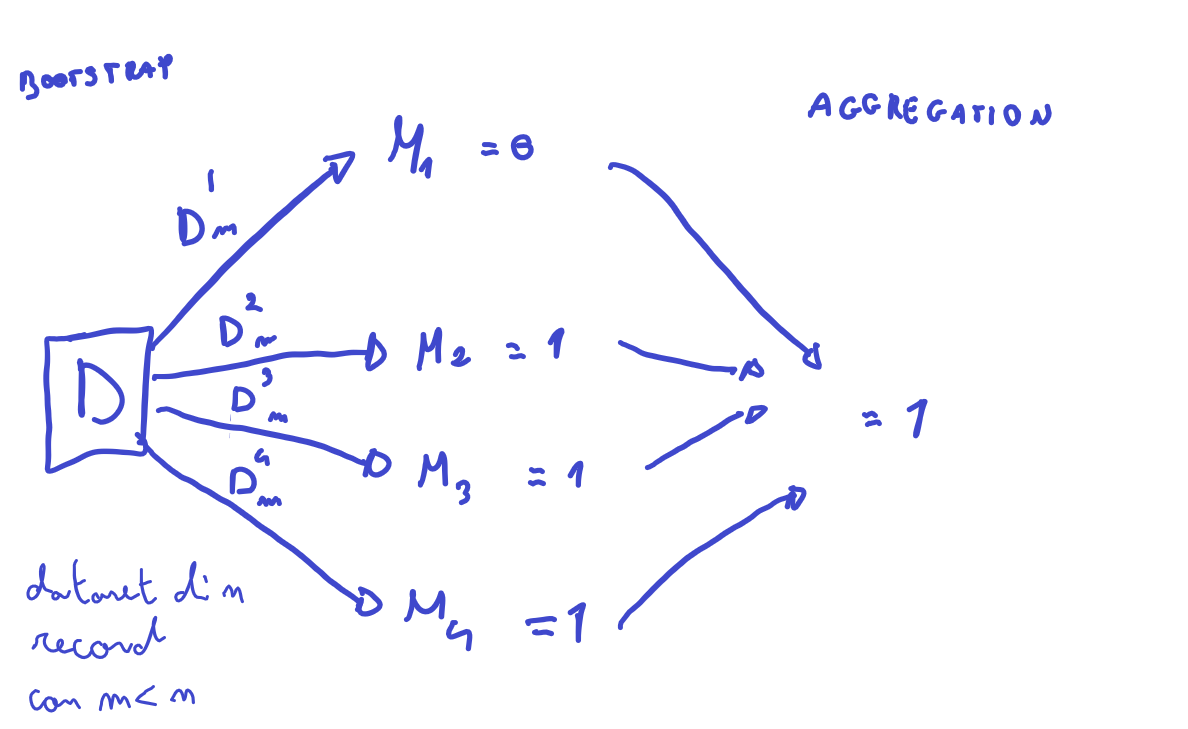 BOOTSTRAP
AGGREGATION
M₁ = 0
D¹ₘ
D²ₘ
M₂ = 1
D
D³ₘ
= 1
D⁴ₘ
M₃ = 1
M₄ = 1
dataset di n
record
con m < n